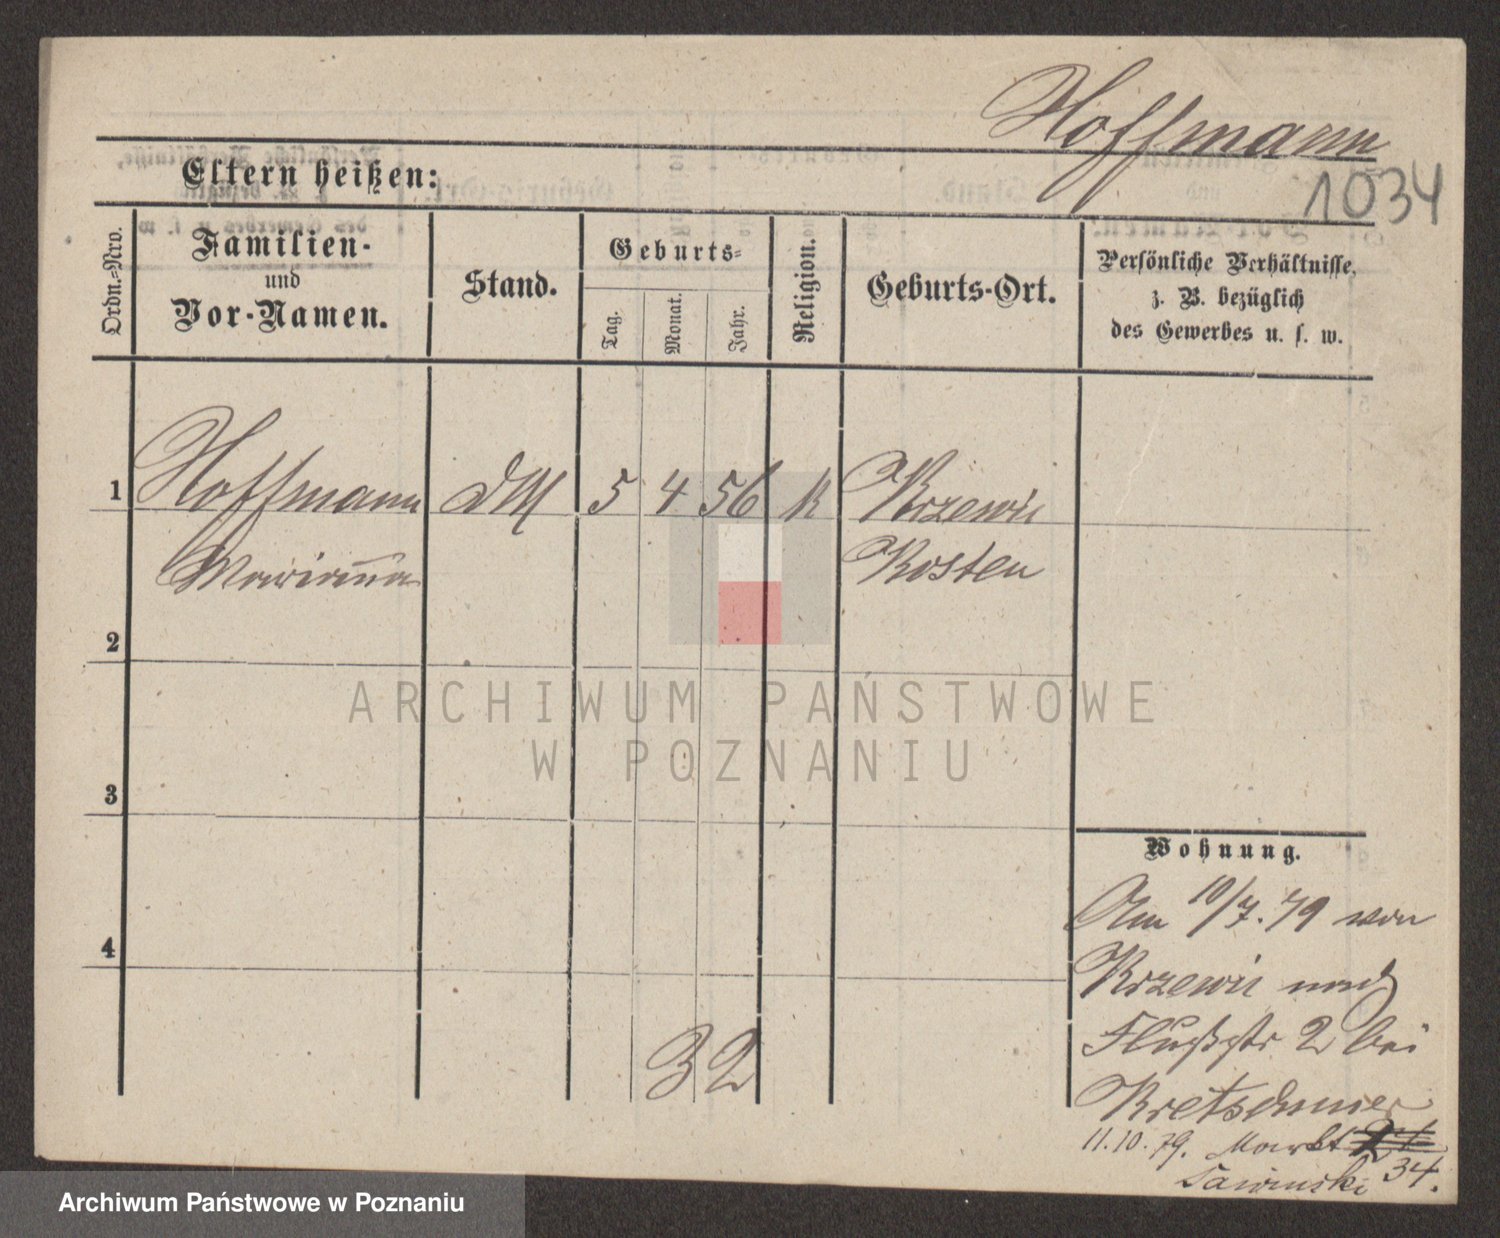 Hoffmann
1034
Eltern heißen:
Ordn.=Nro.
Familien-
und
Vor-Namen.
Stand.
Geburts=
Tag.
Monat.
Jahr.
Religion.
Geburts-Ort.
Persönliche Verhältnisse,
z. B. bezüglich
des Gewerbes u. s. w.
1 Hoffmann DM 5 4 56 K Krzewii
Marianna Kosten
2
ARCHIWUM PAŃSTWOWE
W POZNANIU
3
Wohnung.
Am 10/7.79 von
4
Krzewii nach
Flußstr 2 bei
32
Kretschmer
11.10.79. Markt
34.
Archiwum Państwowe w Poznaniu